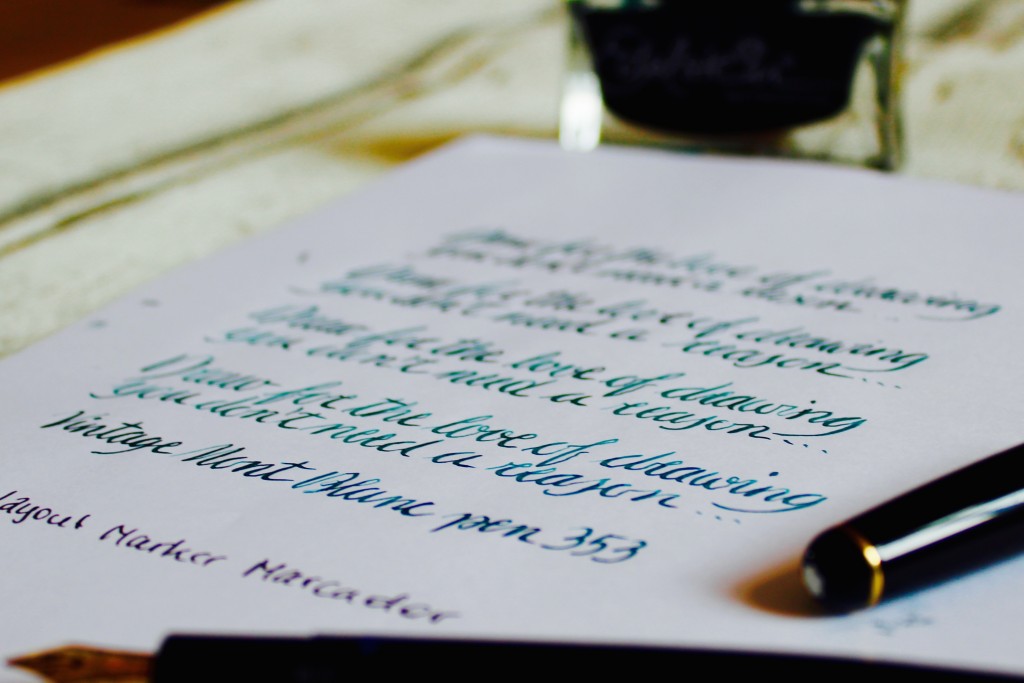 Draw for the love of drawing
you don't need a reason
Draw for the love of drawing
you don't need a reason...
Draw for the love of drawing
you don't need a reason...
Draw for the love of drawing
You don't need a reason...
Vintage Mont Blanc pen 353
Layout Marker Marcader